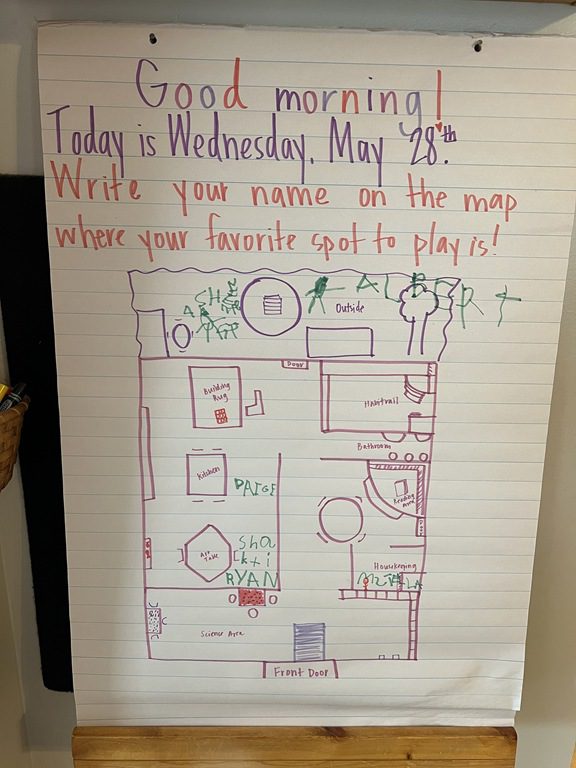 Good morning!
Today is Wednesday, May 28th.
Write your name on the map
where your favorite spot to play is!
ALBERT
Outside
Door
Building
Rug
Habitrail
Bathroom
Kitchen
PAIGE
Reading
Area
Art
Table
sha
kti
RYAN
Housekeeping
Science Area
Front Door